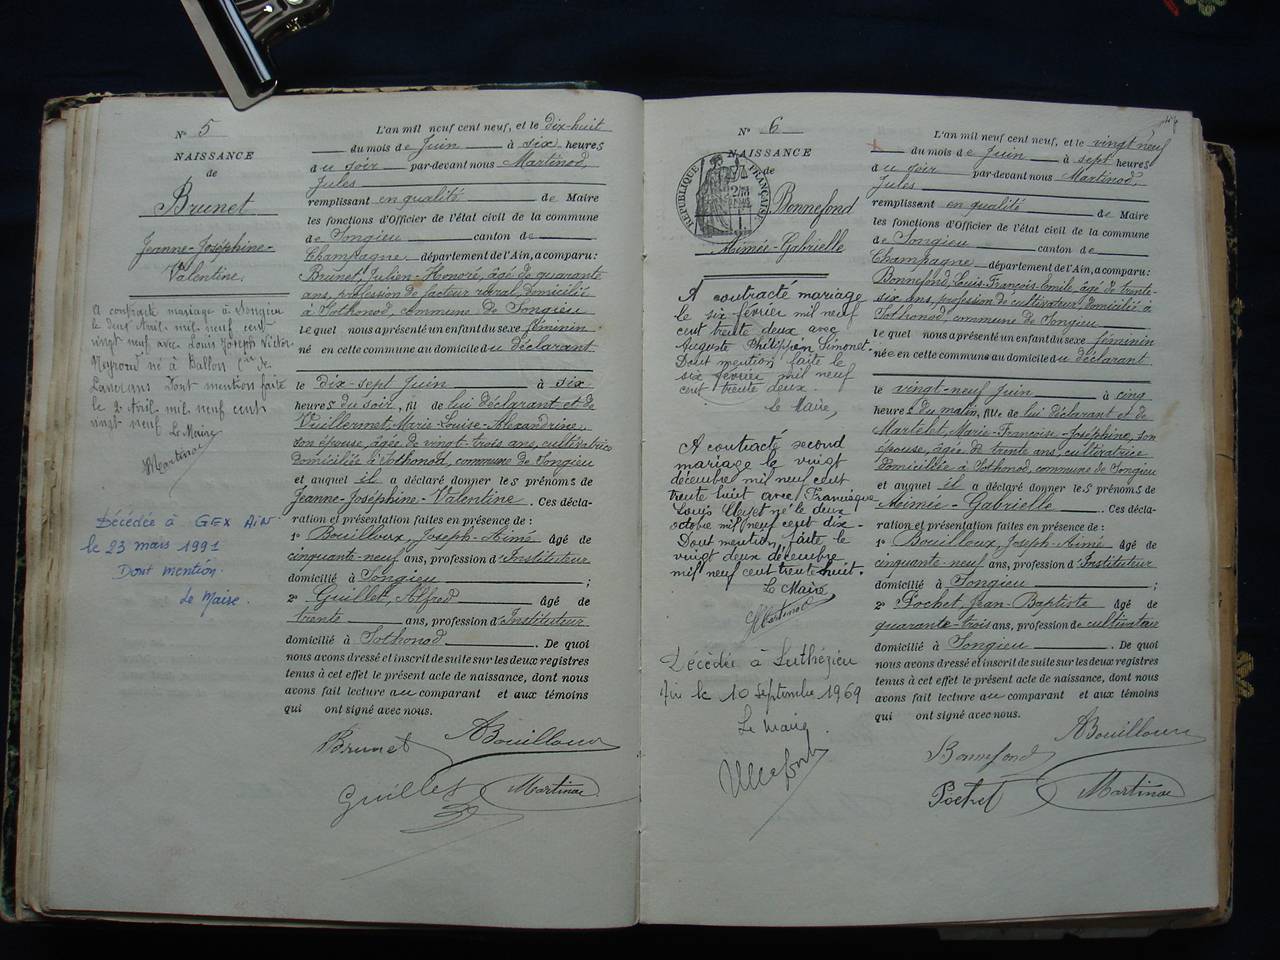 N° 5
NAISSANCE
de
Brunet
Jeanne-Joséphine-
Valentine.
A contracté mariage à Songieu
le deux Avril mil neuf cent
vingt neuf avec Louis Joseph Victor
Neyroud né à Ballon Cne de
Lancrans Dont mention faite
le 2 Avril mil neuf cent
vingt neuf Le Maire
Martinod
Décédée à GEX AIN
le 23 mars 1991
Dont mention.
Le Maire.
L'an mil neuf cent neuf, et le dix-huit
du mois de Juin à six heures
du soir par-devant nous Martinod,
Jules
remplissant en qualité de Maire
les fonctions d'Officier de l'état civil de la commune
de Songieu canton de
Champagne département de l'Ain, a comparu:
Brunet, Julien-Honoré, âgé de quarante
ans, profession de facteur rural, domicilié
à Sothonod, commune de Songieu
Lequel nous a présenté un enfant du sexe féminin
né en cette commune au domicile du déclarant
le dix-sept Juin à six
heures du soir, fil de lui déclarant et de
Vuillermet, Marie-Louise-Alexandrine,
son épouse, âgée de vingt-trois ans, cultivatrice
domiciliée à Sothonod, commune de Songieu
et auquel il a déclaré donner les prénoms de
Jeanne-Joséphine-Valentine. Ces décla-
ration et présentation faites en présence de:
1° Bouilloux, Joseph-Aimé âgé de
cinquante-neuf ans, profession d'Instituteur
domicilié à Songieu ;
2° Guillet, Alfred âgé de
trente ans, profession d'Instituteur
domicilié à Sothonod. De quoi
nous avons dressé et inscrit de suite sur les deux registres
tenus à cet effet le présent acte de naissance, dont nous
avons fait lecture au comparant et aux témoins
qui ont signé avec nous.
Brunet ABouilloux
Guillet Martinod
N° 6
NAISSANCE
de
RÉPUBLIQUE FRANÇAISE
Bonnefond
Aimée-Gabrielle
A contracté mariage
le six février mil neuf
cent trente deux avec
Auguste Philippin Simonet.
Dont mention faite le
six février mil neuf
cent trente deux.
Le Maire,
A contracté second
mariage le vingt
décembre mil neuf cent
trente huit avec Francisque
Louis né le deux
octobre mil neuf cent dix-
Dont mention faite le
vingt deux décembre
mil neuf cent trente huit.
Le Maire
Martinod
Décédée à Luthézieu
Ain le 10 septembre 1969
Le Maire
L'an mil neuf cent neuf, et le vingt neuf
du mois de Juin à sept heures
du soir par-devant nous Martinod,
Jules
remplissant en qualité de Maire
les fonctions d'Officier de l'état civil de la commune
de Songieu canton de
Champagne département de l'Ain, a comparu:
Bonnefond, Louis-François-Emile, âgé de trente-
six ans, profession de cultivateur, domicilié à
Sothonod, commune de Songieu
Lequel nous a présenté un enfant du sexe féminin
née en cette commune au domicile du déclarant
le vingt-neuf Juin à cinq
heures du matin, fille de lui déclarant et de
Martelet, Marie-Françoise-Joséphine, son
épouse, âgée de trente ans, cultivatrice
domiciliée à Sothonod, commune de Songieu
et auquel il a déclaré donner les prénoms de
Aimée-Gabrielle. Ces décla-
ration et présentation faites en présence de:
1° Bouilloux, Joseph-Aimé âgé de
cinquante-neuf ans, profession d'Instituteur
domicilié à Songieu ;
2° Pochet, Jean-Baptiste âgé de
quarante-trois ans, profession de cultivateur
domicilié à Songieu. De quoi
nous avons dressé et inscrit de suite sur les deux registres
tenus à cet effet le présent acte de naissance, dont nous
avons fait lecture au comparant et aux témoins
qui ont signé avec nous.
ABouilloux
Bonnefond
Pochet Martinod